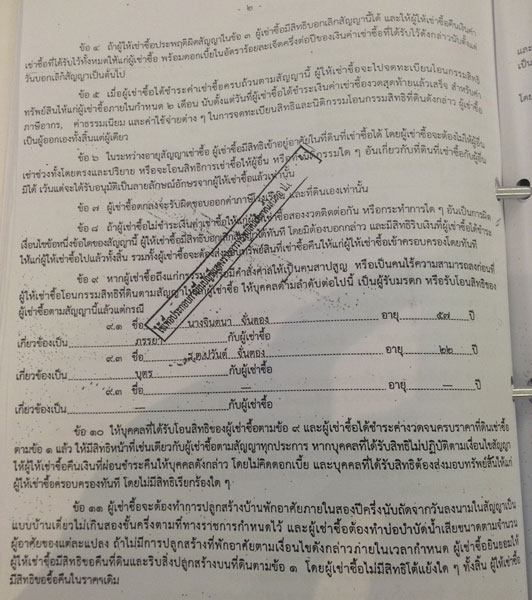 - ๒ -
ข้อ ๔ ถ้าผู้ให้เช่าซื้อประพฤติผิดสัญญาในข้อ ๓ ผู้เช่าซื้อมีสิทธิบอกเลิกสัญญานี้ได้ และให้ผู้ให้เช่าซื้อคืนเงินค่า
เช่าซื้อที่ได้รับไว้ทั้งหมดให้แก่ผู้เช่าซื้อ พร้อมดอกเบี้ยในอัตราร้อยละเจ็ดครึ่งต่อปีของเงินค่าเช่าซื้อที่ได้รับไว้ดังกล่าวนับตั้งแต่
วันบอกเลิกสัญญาเป็นต้นไป
ข้อ ๕ เมื่อผู้เช่าซื้อได้ชำระค่าเช่าซื้อครบถ้วนตามสัญญานี้ ผู้ให้เช่าซื้อจะไปจดทะเบียนโอนกรรมสิทธิ์
ทรัพย์สินให้แก่ผู้เช่าซื้อภายในกำหนด ๒ เดือน นับตั้งแต่วันที่ผู้เช่าซื้อได้ชำระเงินค่าเช่าซื้องวดสุดท้ายแล้วเสร็จ สำหรับค่า
ภาษีอากร ค่าธรรมเนียม และค่าใช้จ่ายต่าง ๆ ในการจดทะเบียนสิทธิและนิติกรรมโอนกรรมสิทธิ์ที่ดินดังกล่าว ผู้เช่าซื้อ
เป็นผู้ออกเองทั้งสิ้นแต่ผู้เดียว
ข้อ ๖ ในระหว่างอายุสัญญาเช่าซื้อ ผู้เช่าซื้อมีสิทธิเข้าอยู่อาศัยในที่ดินที่เช่าซื้อได้ โดยผู้เช่าซื้อจะต้องไม่ให้ผู้อื่น
เช่าช่วงทั้งโดยตรงและปริยาย หรือจะโอนสิทธิการเช่าซื้อให้ผู้อื่น หรือ ใด ๆ อันเกี่ยวกับที่ดินที่เช่าซื้อกับผู้อื่น
มิได้ เว้นแต่จะได้รับอนุมัติเป็นลายลักษณ์อักษรจากผู้ให้เช่าซื้อแล้วเท่านั้น
ข้อ ๗ ผู้เช่าซื้อตกลงจะรับผิดชอบออกค่าภาษี และที่ดินเองเท่านั้น
ข้อ ๘ ถ้าผู้เช่าซื้อไม่ชำระเงินค่าเช่าซื้อให้แก่ผู้ให้เช่าซื้อสองงวดติดต่อกัน หรือกระทำการใด ๆ อันเป็นการผิด
เงื่อนไขข้อหนึ่งข้อใดของสัญญานี้ ผู้ให้เช่าซื้อมีสิทธิบอกเลิก ได้ทันที โดยมิต้องบอกกล่าว และมีสิทธิริบเงินที่ผู้เช่าซื้อได้ชำระ
ให้แก่ผู้ให้เช่าซื้อไปแล้วทั้งสิ้น รวมทั้งผู้เช่าซื้อจะต้องส่งมอบทรัพย์สินที่เช่าซื้อคืนให้แก่ผู้ให้เช่าซื้อเข้าครอบครองโดยทันที
ข้อ ๙ หากผู้เช่าซื้อถึงแก่กรรม มีคำสั่งศาลให้เป็นคนสาปสูญ หรือเป็นคนไร้ความสามารถลงก่อนที่
ผู้ให้เช่าซื้อโอนกรรมสิทธิ์ที่ดินตามสัญญา ให้บุคคลตามลำดับต่อไปนี้ เป็นผู้รับมรดก หรือรับโอนสิทธิของ
ผู้เช่าซื้อตามสัญญานี้แล้วแต่กรณี
๙.๑ ชื่อ นางจินตนา จั่นตอง อายุ ๕๗ ปี
เกี่ยวข้องเป็น ภรรยา กับผู้เช่าซื้อ
๙.๒ ชื่อ จั่นตอง อายุ ๒๒ ปี
เกี่ยวข้องเป็น บุตร กับผู้เช่าซื้อ
๙.๓ ชื่อ — อายุ — ปี
เกี่ยวข้องเป็น — กับผู้เช่าซื้อ
ข้อ ๑๐ ให้บุคคลที่ได้รับโอนสิทธิของผู้เช่าซื้อตามข้อ ๙ และผู้เช่าซื้อได้ชำระค่างวดจนครบราคาที่ดินเช่าซื้อ
ตามข้อ ๑ แล้ว ให้มีสิทธิหน้าที่เช่นเดียวกับผู้เช่าซื้อตามสัญญาทุกประการ หากบุคคลที่ได้รับสิทธิไม่ปฏิบัติตามเงื่อนไขสัญญา
ให้ผู้ให้เช่าซื้อคืนเงินที่ผ่อนชำระคืนให้บุคคลดังกล่าว โดยไม่คิดดอกเบี้ย และบุคคลที่ได้รับสิทธิต้องส่งมอบทรัพย์สินให้แก่
ผู้ให้เช่าซื้อครอบครองทันที โดยไม่มีสิทธิเรียกร้องใด ๆ
ข้อ ๑๑ ผู้เช่าซื้อจะต้องทำการปลูกสร้างบ้านพักอาศัยภายในสองปีครึ่งนับถัดจากวันลงนามในสัญญาเป็น
แบบบ้านเดี่ยวไม่เกินสองชั้นครึ่งตามที่ทางราชการกำหนดไว้ และผู้เช่าซื้อต้องทำบ่อบำบัดน้ำเสียขนาดตามจำนวน
ผู้อาศัยของแต่ละแปลง ถ้าไม่มีการปลูกสร้างที่พักอาศัยตามเงื่อนไขดังกล่าวภายในเวลากำหนด ผู้เช่าซื้อยินยอมให้
ผู้ให้เช่าซื้อมีสิทธิขอคืนที่ดินและริบสิ่งปลูกสร้างบนที่ดินตามข้อ ๑ โดยผู้เช่าซื้อไม่มีสิทธิโต้แย้งใด ๆ ทั้งสิ้น ผู้ให้เช่าซื้อ
มีสิทธิขอซื้อคืนในราคาเดิม